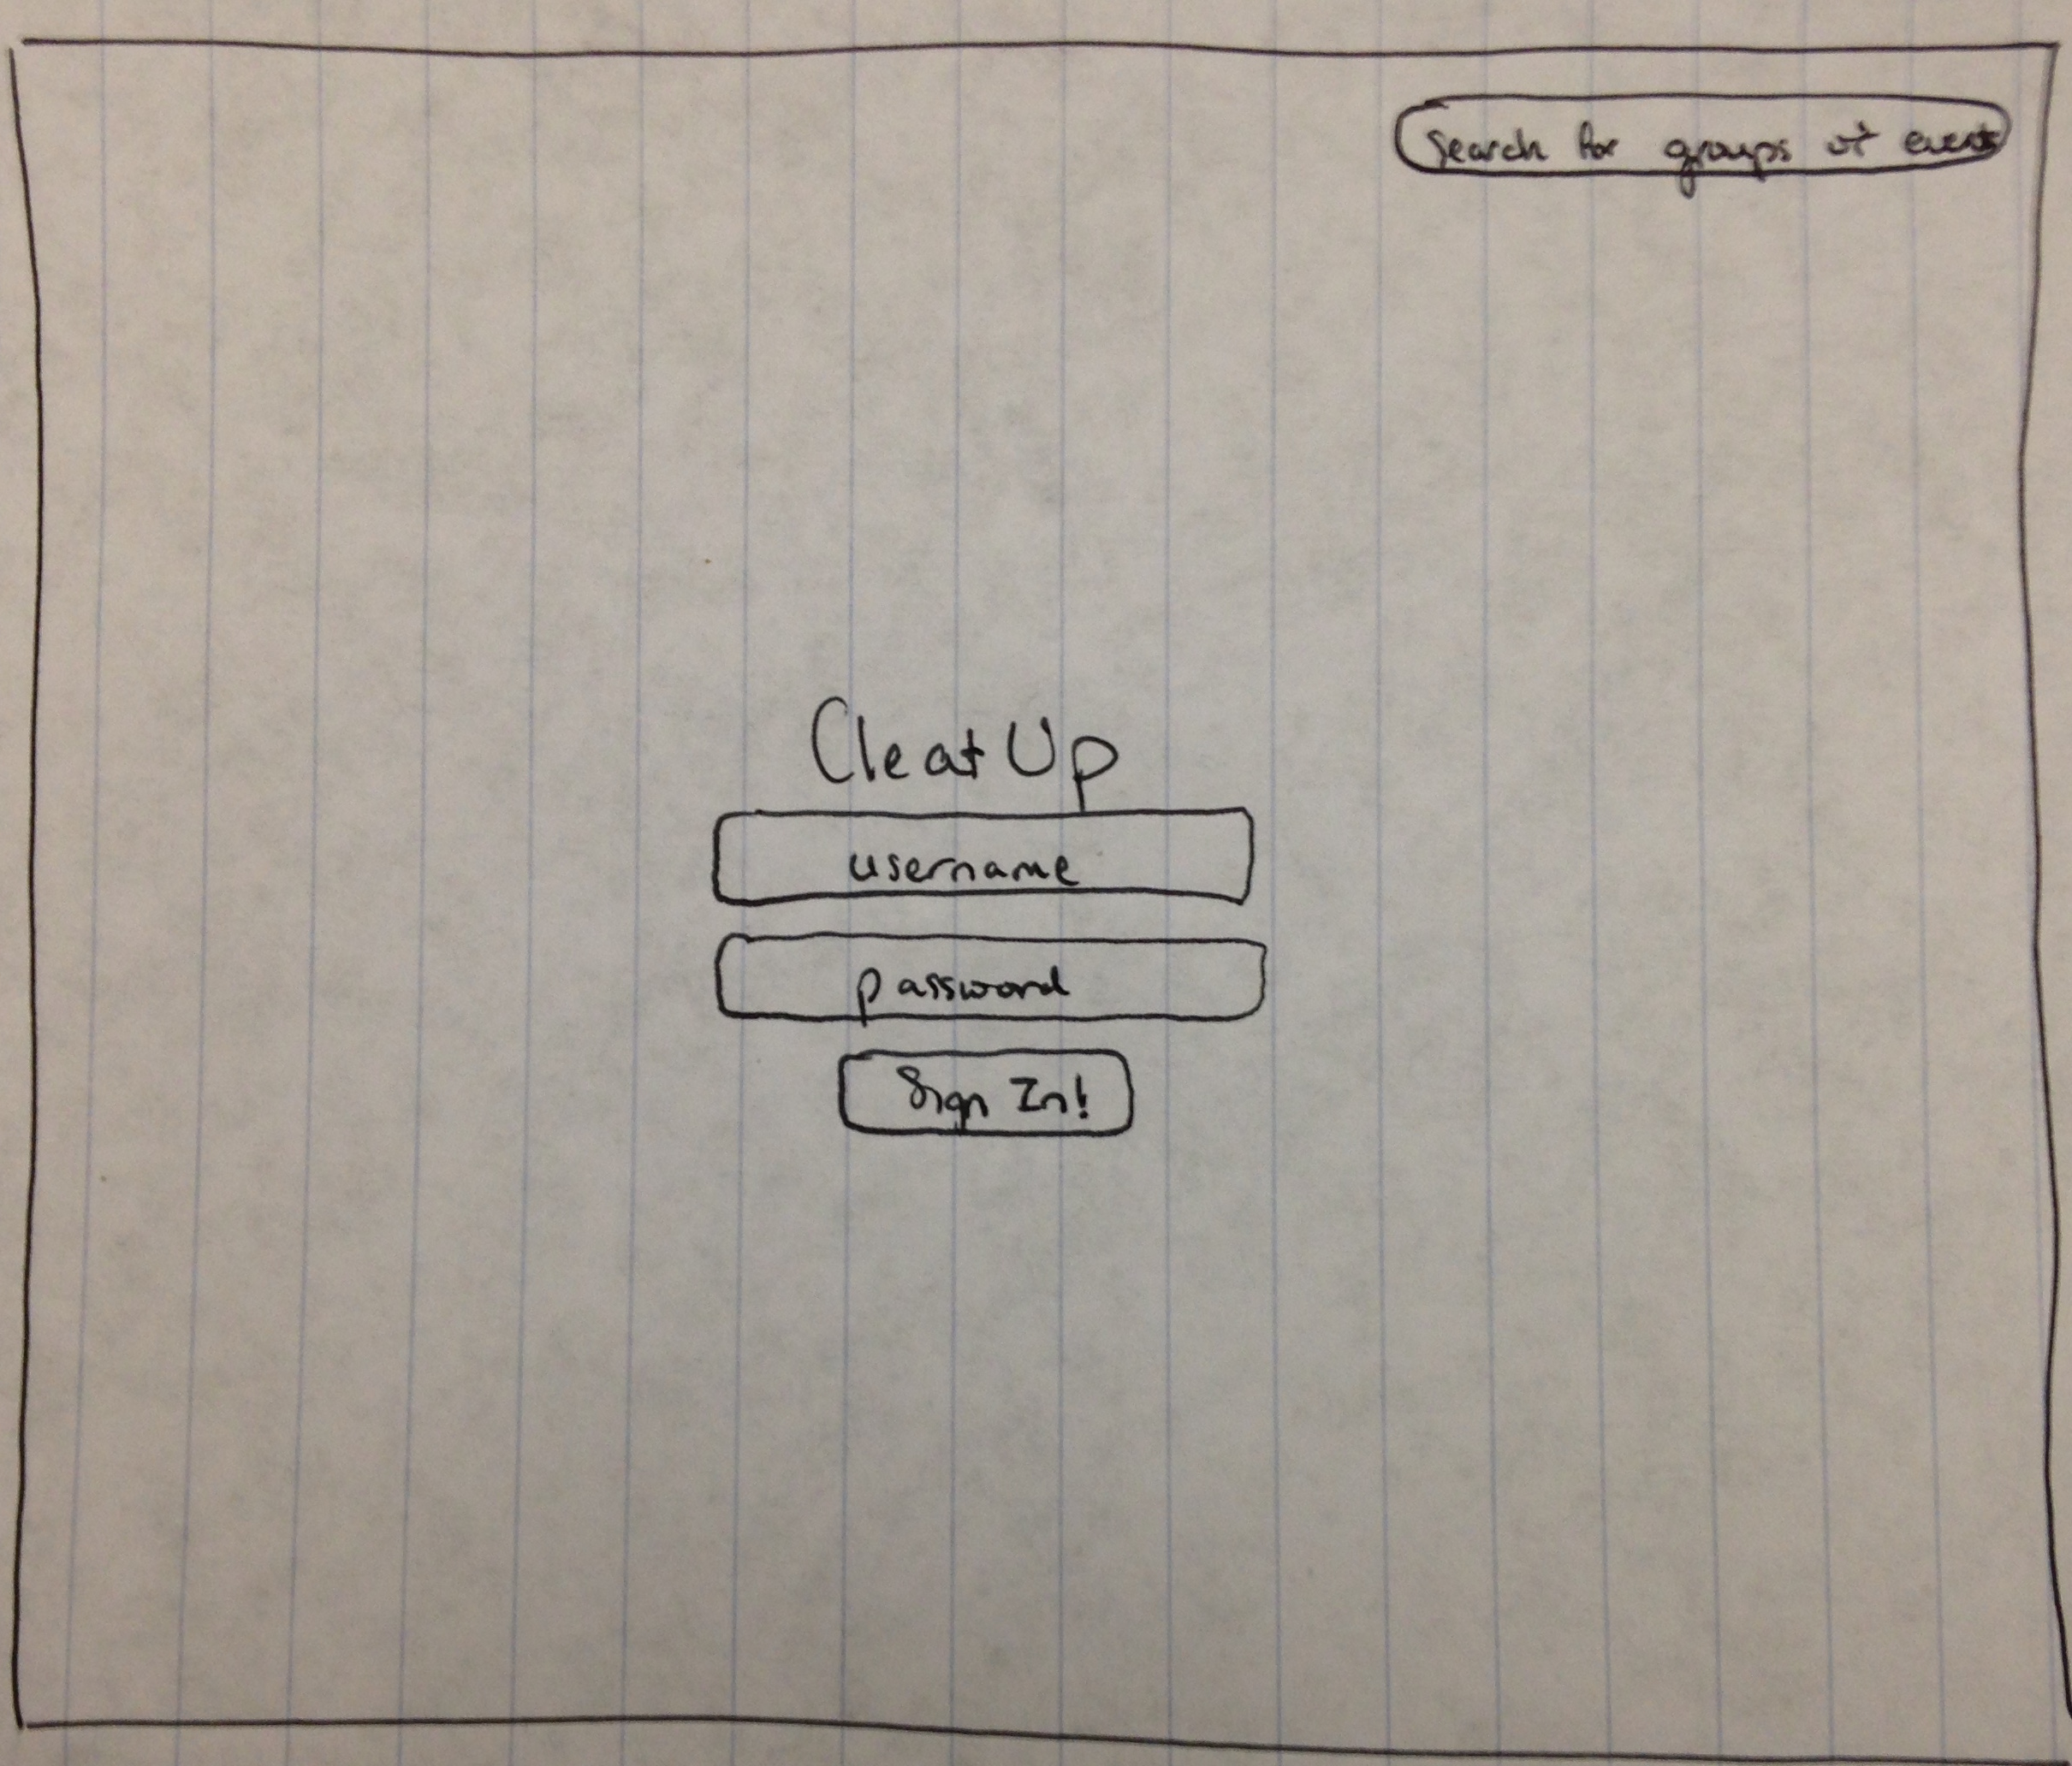 search for groups or events
CleatUp
username
password
Sign In!